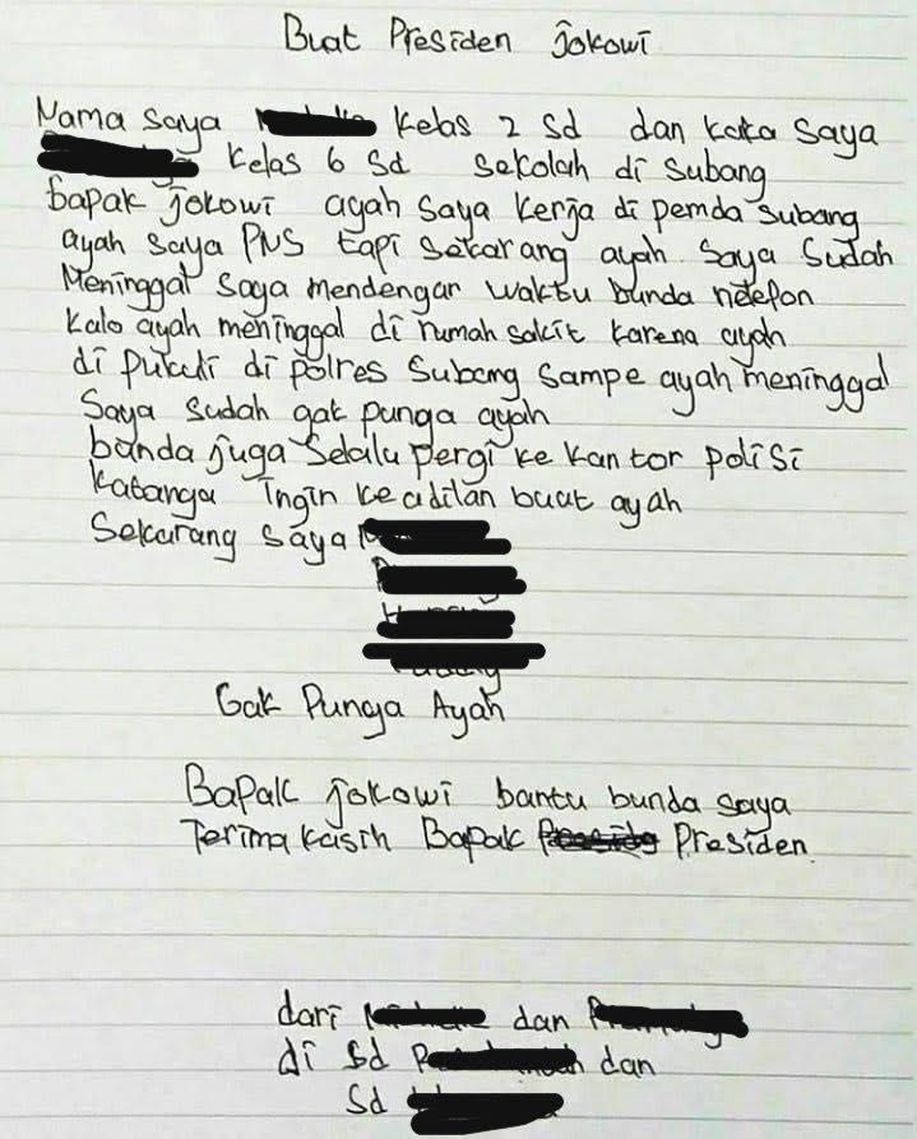 Buat Presiden jokowi
Nama saya kelas 2 sd dan kaka saya
kelas 6 sd sekolah di Subang
bapak jokowi ayah saya kerja di pemda subang
ayah saya PNS tapi sekarang ayah saya sudah
Meninggal saya mendengar waktu bunda nelefon
kalo ayah meninggal di rumah sakit karena ayah
di pukuli di polres Subang sampe ayah meninggal
Saya sudah gak punya ayah
bunda juga selalu pergi ke kantor polisi
katanya ingin keadilan buat ayah
Sekarang saya
Gak Punya Ayah
Bapak jokowi bantu bunda saya
Terima kasih Bapak Presiden.
dari dan
di sd dan
Sd